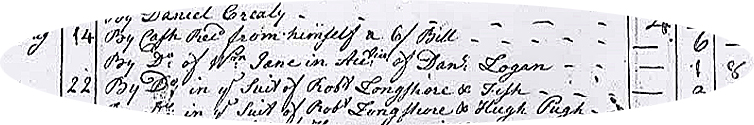 By Daniel Crealy
14 By Cash Recd from himself a 6/ Bill 6
By Do of Wm Jane in of Danl Logan 1 8
22 By Do in ye Suit of Robt Longshore & Fish
in ye Suit of Robt Longshore & Hugh Pugh